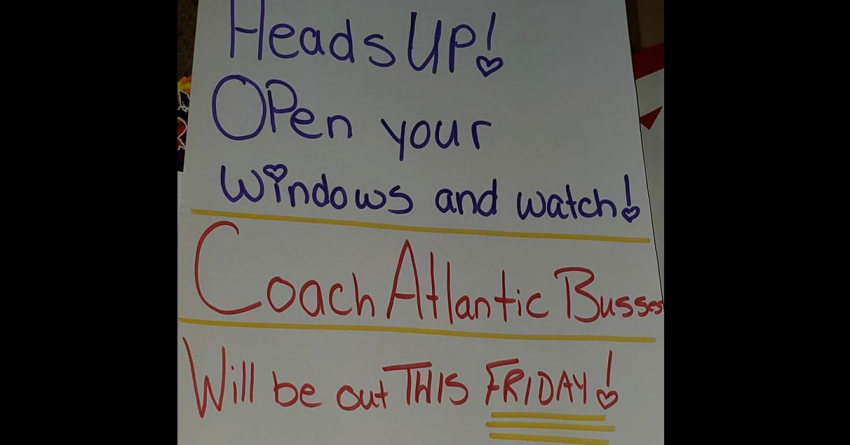 Heads UP!
OPen your
windows and watch!
Coach Atlantic Busses
Will be out THIS FRIDAY!